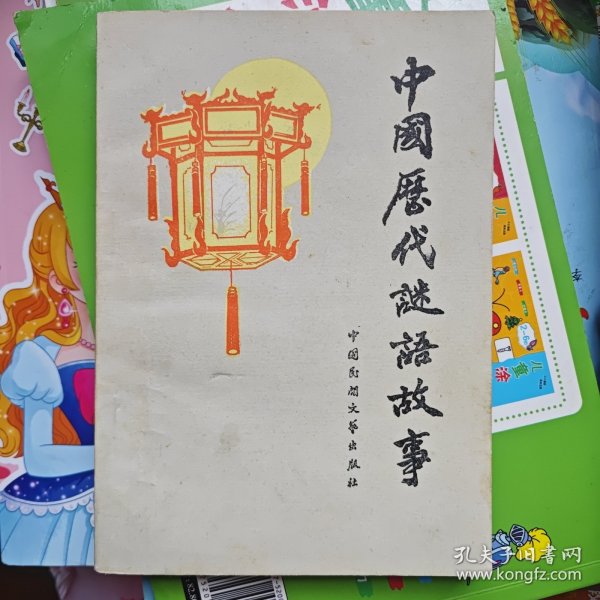 中國歷代謎語故事
中国民间文艺出版社
儿
2-6
儿童
涂
李
孔夫子旧书网
www.kongfz.com